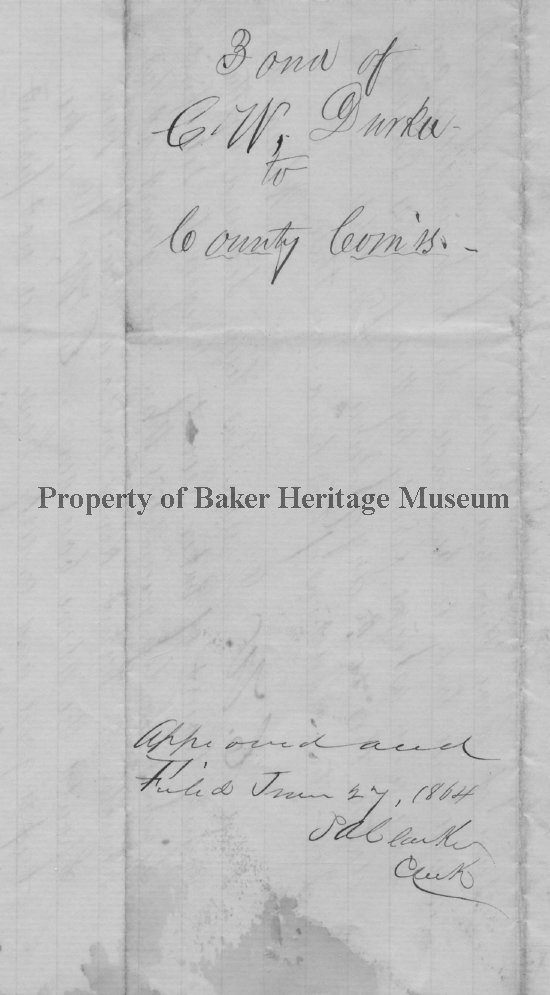 Bond of
C. W. Durkee
to
County Com's.
Property of Baker Heritage Museum
Approved and
Filed June 27, 1864
Clerk